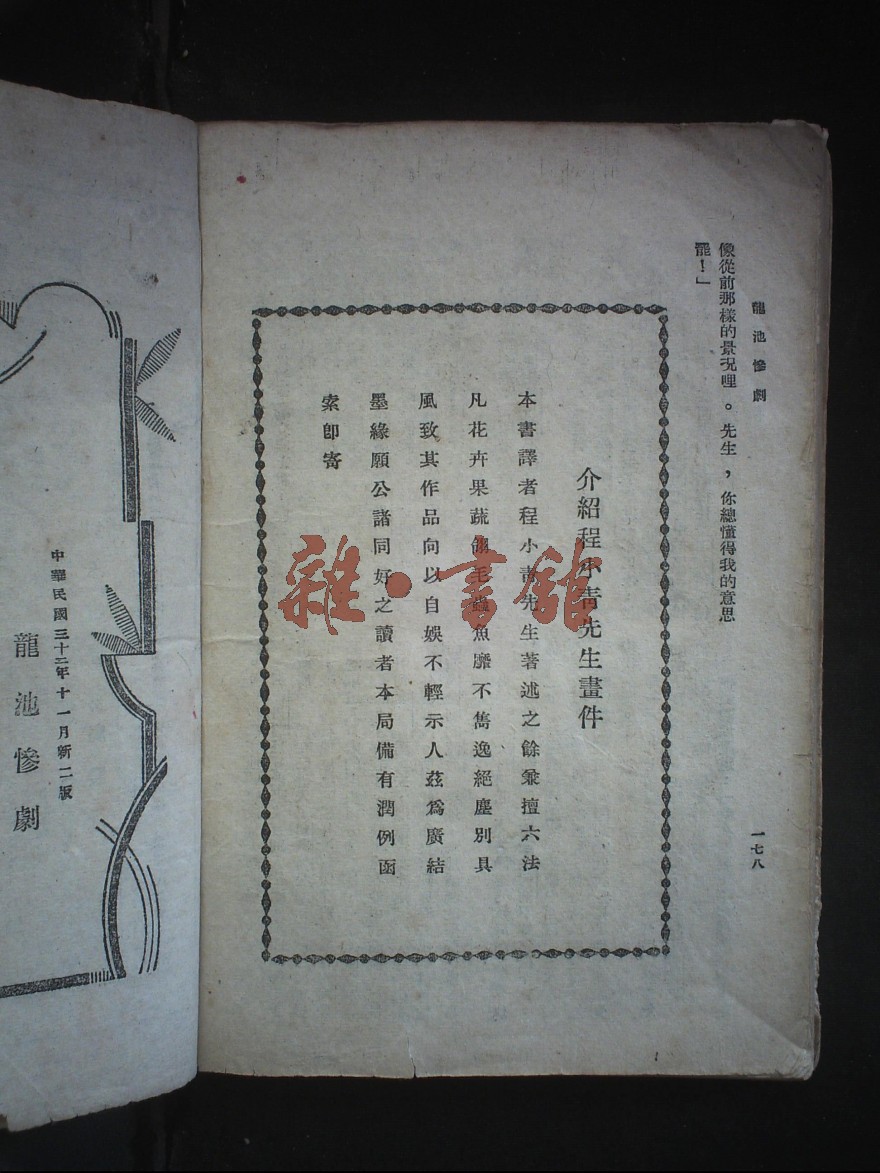 龍池慘劇
一七八
像從前那樣的景况哩。先生，你總懂得我的意思
罷！」
介紹程小青先生畫件
本書譯者程小青先生著述之餘兼擅六法
凡花卉果蔬翎毛蟲魚靡不雋逸絕塵別具
風致其作品向以自娛不輕示人茲爲廣結
墨緣願公諸同好之讀者本局備有潤例函
索卽寄
雜·書館
中華民國三十二年十一月新二版
龍池慘劇